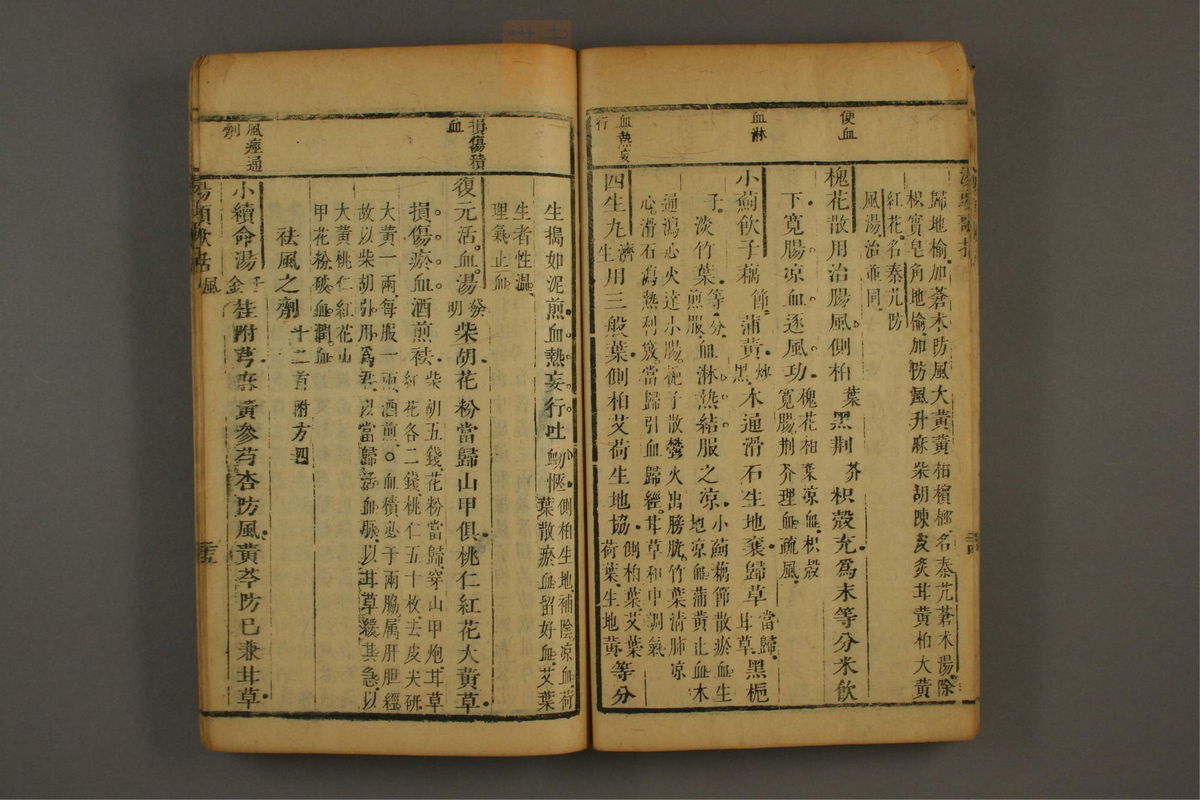 歸地榆加蒼朮防風大黃黃柏檳榔名秦艽蒼朮湯除
枳實皂角地榆加防風升麻柴胡陳皮炙甘黃柏大黃
紅花名秦艽防
風湯治並同
便血
槐花散用治腸風側柏葉黑荆芥枳殼充爲末等分米飲
下寬腸凉血逐風功槐花柏葉凉血枳殼
寬腸荆芥理血疏風
血淋
小薊飲子藕節蒲黃炒黑木通滑石生地襄歸草當歸甘草黑梔
子淡竹葉等分煎服血淋熱結服之凉小薊藕節散瘀血生
地凉血蒲黃止血木
通瀉心火達小腸梔子散鬱火出膀胱竹葉清肺凉
心滑石瀉熱利竅當歸引血歸經甘草和中調氣
血熱妄
行
四生丸濟生用三般葉側柏艾荷生地協側柏葉艾葉
荷葉生地黃等分
生搗如泥煎血熱妄行吐衂愜側柏生地補陰凉血荷
葉散瘀血留好血艾葉
生者性温
理氣止血
損傷積
血
復元活血湯發明柴胡花粉當歸山甲俱桃仁紅花大黃草
損傷瘀血酒煎祛柴胡五錢花粉當歸穿山甲炮甘草
紅花各二錢桃仁五十枚去皮尖研
大黃一兩每服一兩酒煎○血積必于兩脇属肝胆經
故以柴胡引用爲君以當歸活血脉以甘草緩其急以
大黃桃仁紅花山
甲花粉破血潤血
祛風之劑十二首附方四
風痙通
劑
小續命湯千金桂附芎麻黃參芍杏防風黃芩防已兼甘草
湯頭歌括 風 二十五